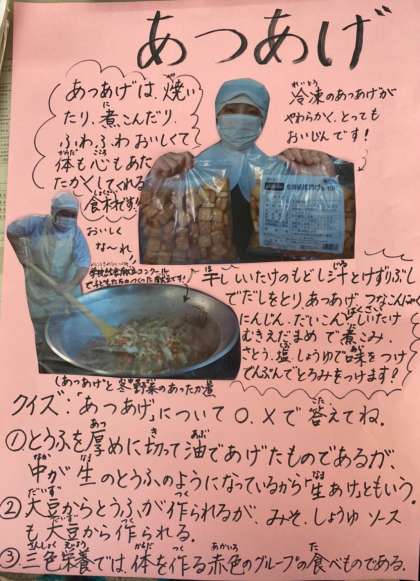 あつあげ
あつあげは、焼い
たり、煮こんだり、
ふわふわおいしくて
体も心もあた
たかくしてくれる
食材です
冷凍のあつあげが
やわらかく、とっても
おいしんです！
おいしく
な〜れ
干ししいたけのもどし汁とけずりぶし
でだしをとり、あつあげ、つなこんにゃく
にんじん、だいこん、干ししいたけ
むきえだまめで煮こみ、
さとう、塩、しょうゆで味をつけ
でんぷんでとろみをつけます！
(あつあげと冬野菜のあったか煮
クイズ:「あつあげ」について〇、×で答えてね。
①とうふを厚めに切って油であげたものであるが、
中が生のとうふのようになっているから「生あげ」ともいう。
②大豆からとうふが作られるが、みそ、しょうゆ、ソース
も大豆から作られる。
③三色栄養では、体を作る赤色のグループの食べものである。